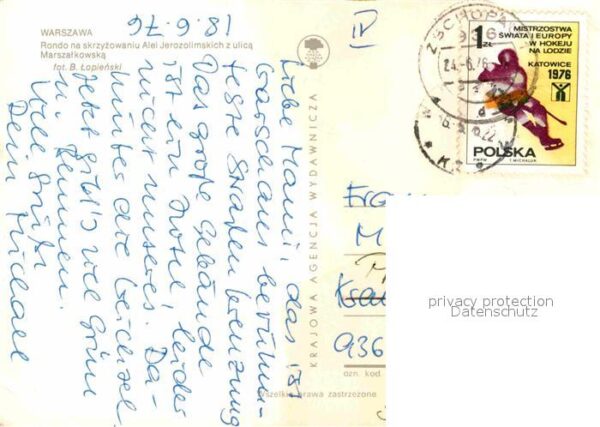 WARSZAWA
Rondo na skrzyżowaniu Alei Jerozolimskich z ulicą
Marszałkowską
fot. B. Łopieński
18.6.76
Liebe Mami, das ist
Warschaus berühm-
teste Straßenkreuzung
Das große Gebäude
ist ein Hotel, leider
nicht unseres. Da-
hinter die Weichsel.
Jetzt gibt's viel Grün
in
Viele Grüße
Dein Michael
KRAJOWA AGENCJA WYDAWNICZA
IV
ZSCHOPAU
936
24.-6.76
MISTRZOSTWA
ŚWIATA I EUROPY
W HOKEJU
NA LODZIE
KATOWICE
1976
1 ZŁ
POLSKA
PWPW
T. MICHALUK
936
ozn. kod
Wszelkie prawa zastrzeżone
privacy protection
Datenschutz